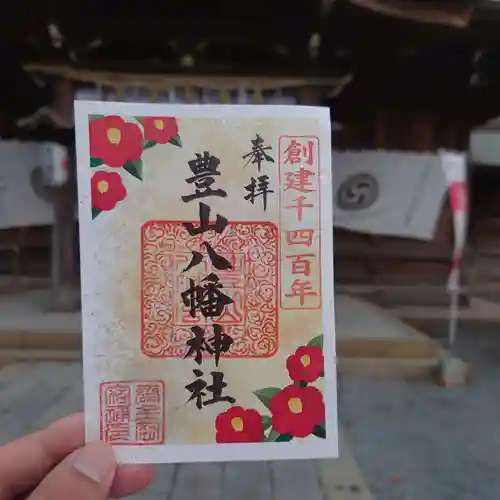 創建千四百年
奉拝
豊山八幡神社